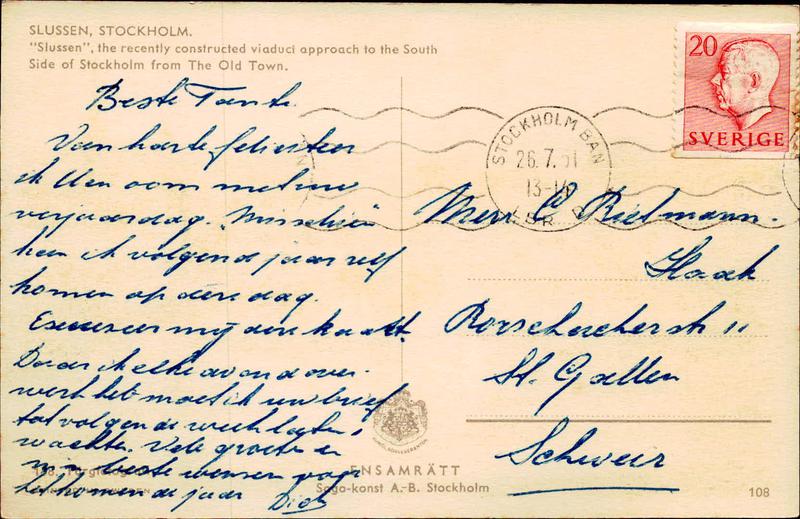 SLUSSEN, STOCKHOLM.
"Slussen", the recently constructed viaduct approach to the South
Side of Stockholm from The Old Town.
20
SVERIGE
STOCKHOLM BAN
26.7.51
13-14
Beste Tante.
Van harte feliciteer
ik U en oom met uw
verjaardag. Misschien
kan ik volgend jaar zelf
komen op deze dag.
Excuseer mij deze kaart.
Daar ik elke avond over
werk heb moet ik uw brief
tot volgende week laten
wachten. Vele groeten en
beste wensen voor
het komende jaar Dick
Herr C Rielmann.
Haak
Rorschacherstr 11
St. Gallen
Schweiz
ENSAMRÄTT
Saga-konst A.-B. Stockholm
108